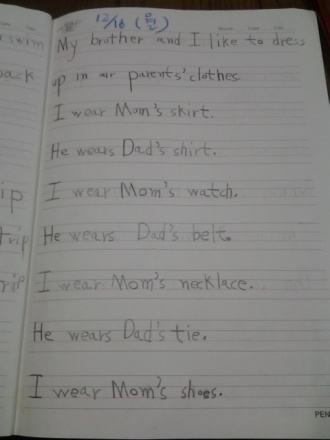 12/16 (월)
My brother and I like to dress
up in our parents' clothes.
I wear Mom's skirt.
He wears Dad's shirt.
I wear Mom's watch.
He wears Dad's belt.
I wear Mom's necklace.
He wears Dad's tie.
I wear Mom's shoes.
swim
pack
ip
trip
rip
PEN